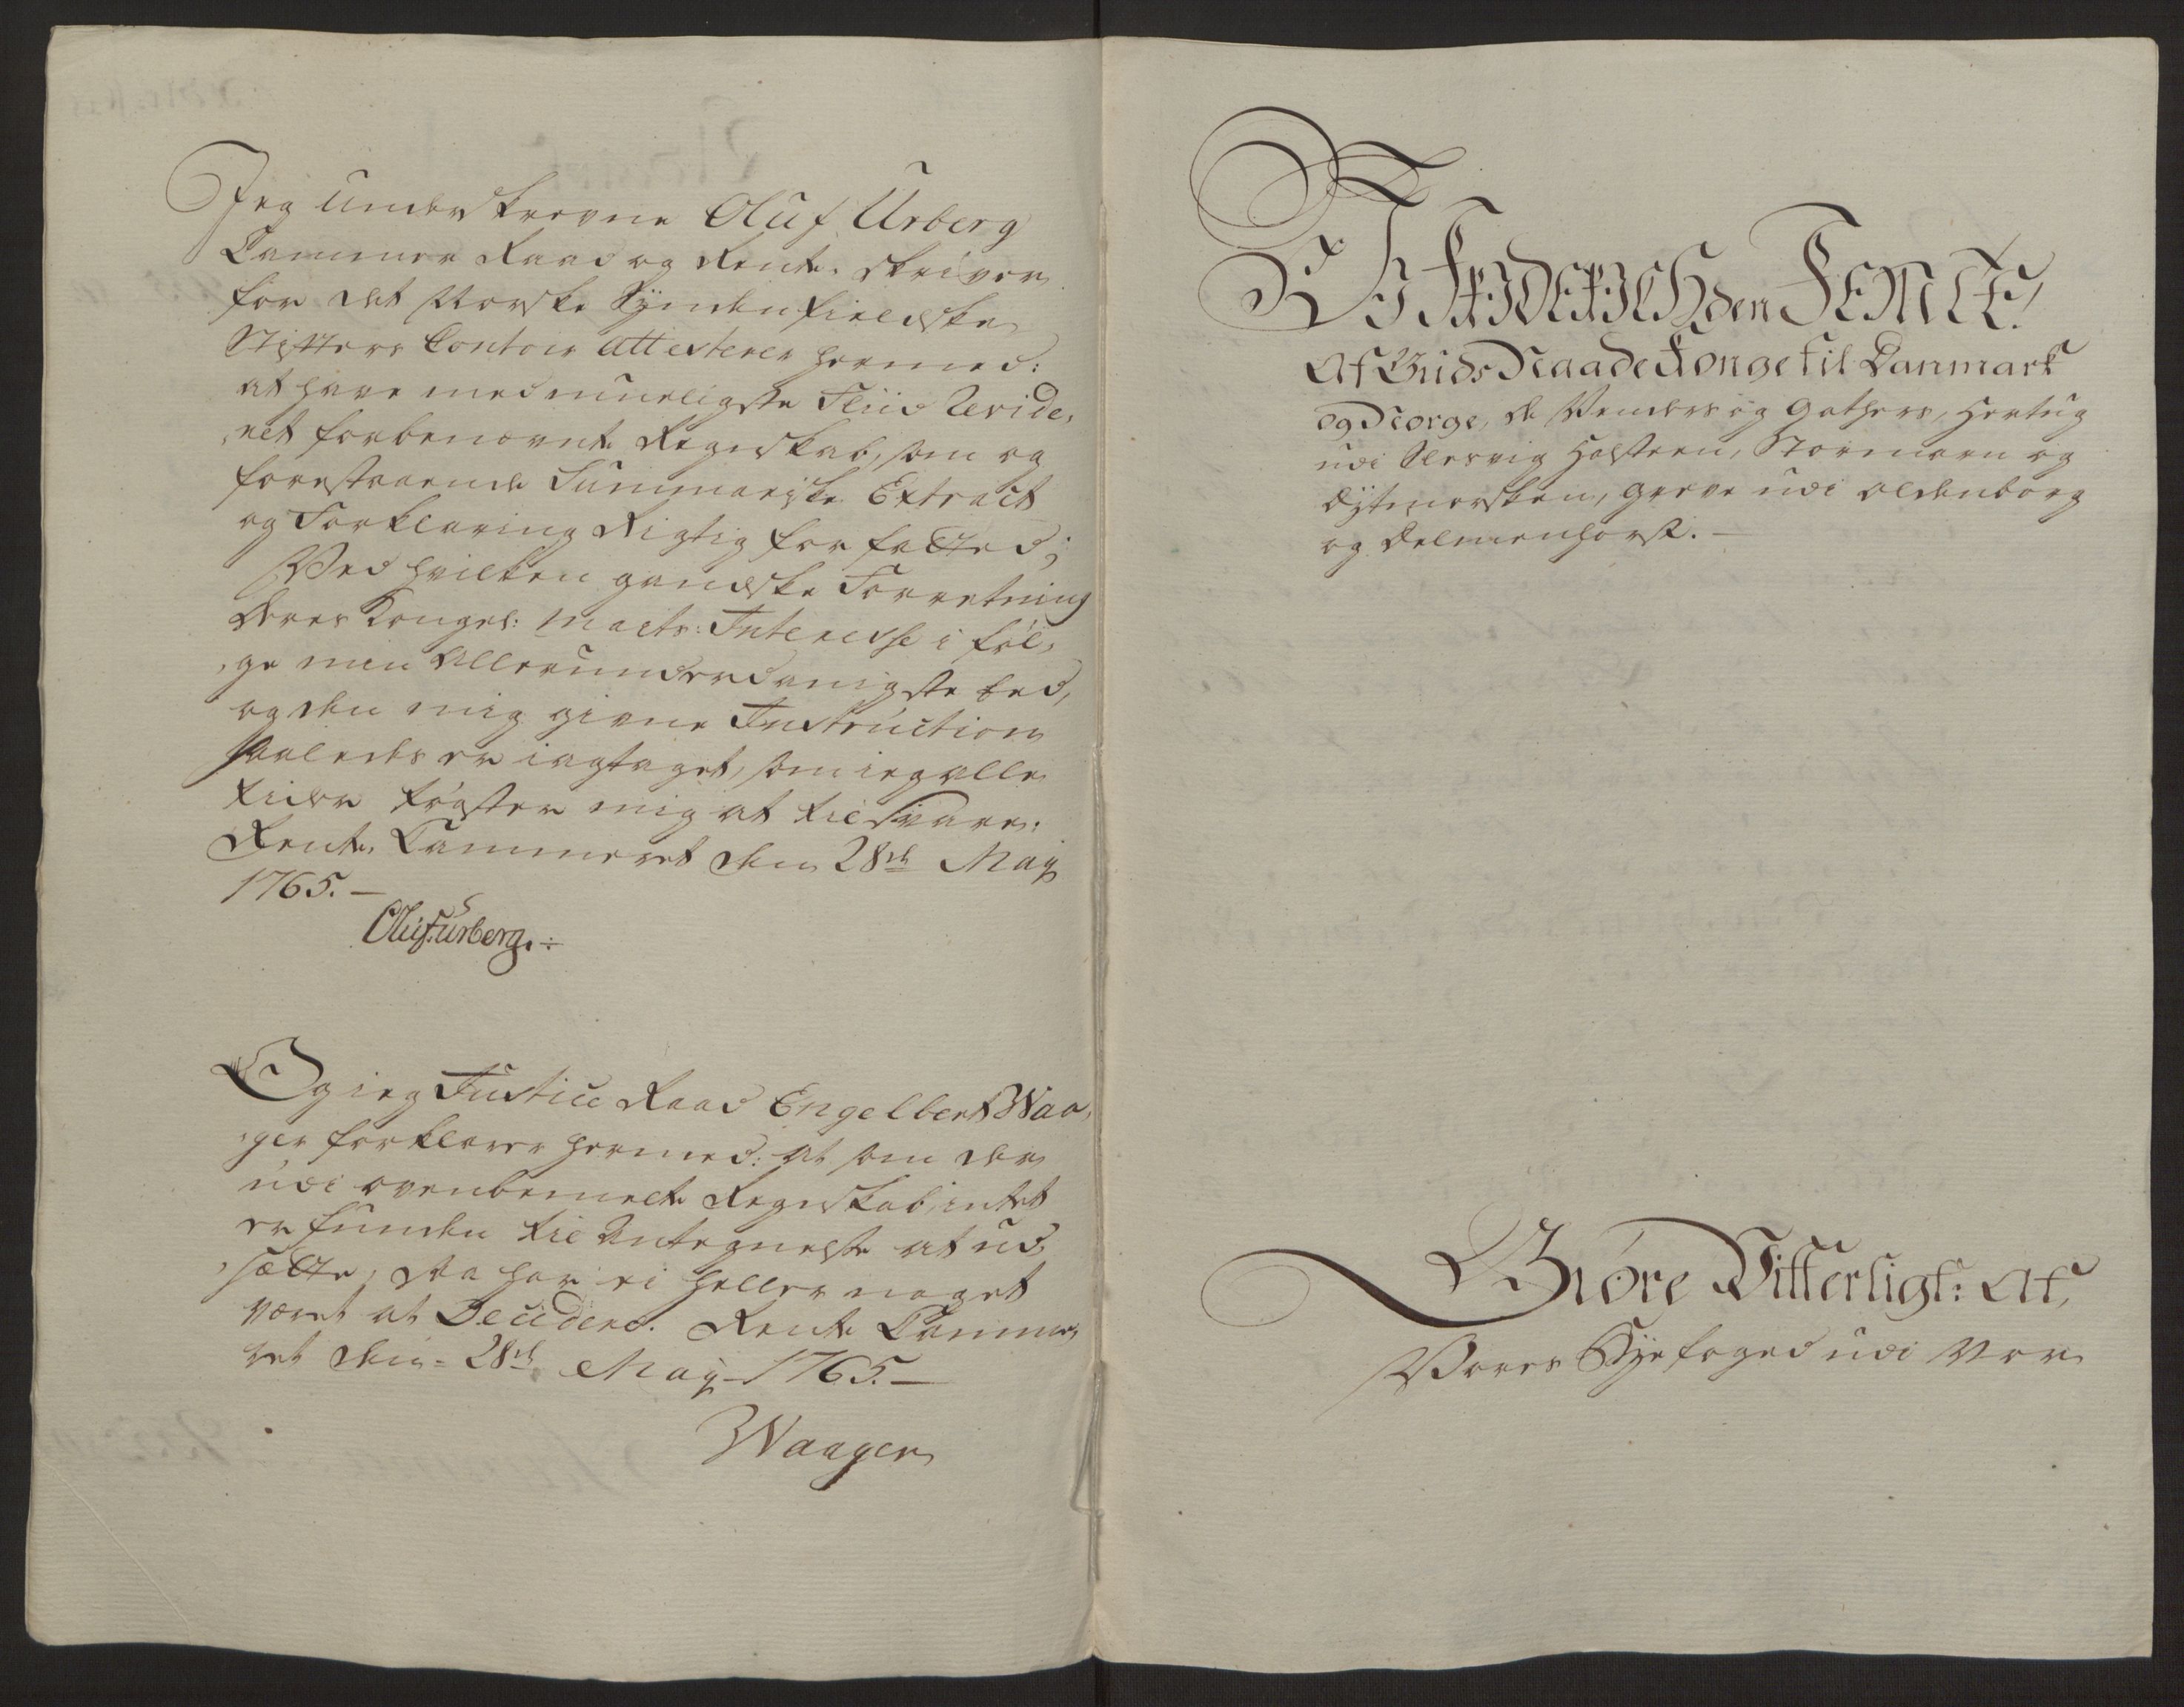 Jeg underskrevne Oluf Urberg
Cammer Raad og Rente-skriver
for det Norske Syndenfieldske
Stifters Contoir Attesterer hermed:
at have med mueligste Fliid Revide-
ret forbenævnte Regnskab, som og
forestaaende Summariske Extract
og Forklaring Rigtig forfatted;
Ved hvilken gandske Forretning
Deres Kongel: Maits: Interesse i føl-
ge min Allerunderdanigste Eed,
og den mig givne Instruction
saaledes er iagtaget, som ieg alle
tider trøster mig at tilsvare.
Rente-Cammeret den 28de Maÿ
1765.—
Oluf Urberg.
Og ieg Justice Raad Engelbert Waa-
ger forklarer hermed: at som der
udi ovenbemelte Regnskab intet
er funden til Antegnelse at ud-
sætte, saa har ei heller noget
været at Decidere. Rente Camme-
ret den 28de Maÿ 1765.—
Waager
VJ FRJDERJCH den FEMTE,
Af Guds Naade Konge til Danmark
og Norge, de Venders og Gothers, Hertug
udi Slesvig Holsteen, Stormarn og
Dytmersken, Greve udi Oldenborg
og Delmenhorst.—
Giøre Vitterligt: At,
Vores Byefoged udi Vor